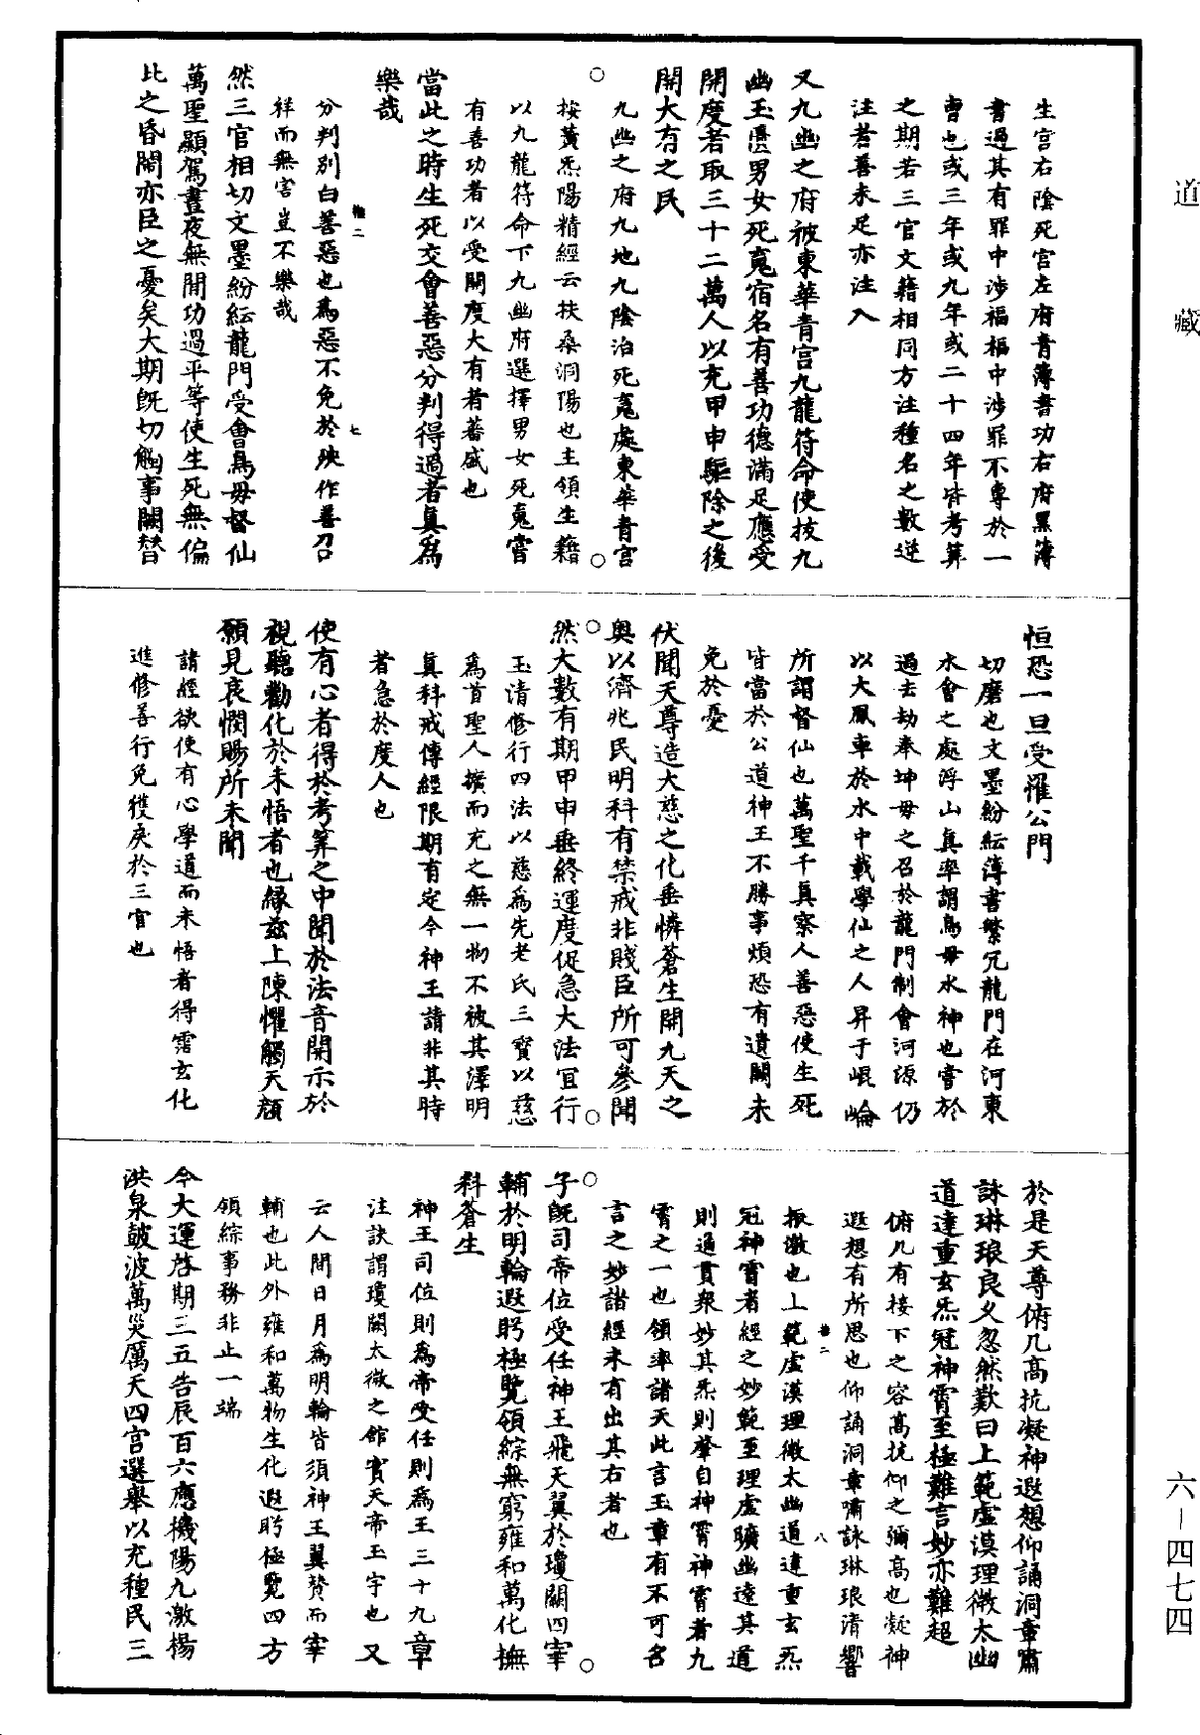 道藏
生宮右陰死宮左府青簿書功右府黑簿
書過其有罪中涉福福中涉罪不專於一
曹也或三年或九年或二十四年皆考筭
之期若三官文籍相同方注種名之數逆
注若善未足亦注入
又九幽之府被東華青宮九龍符命使拔九
幽玉匱男女死䰟宿名有善功德滿足應受
開度者取三十二萬人以充甲申驅除之後
開大有之民
九幽之府九地九陰治死䰟處東華青宮
按黃炁陽精經云扶桑洞陽也主領生籍
以九龍符命下九幽府選擇男女死䰟嘗
有善功者以受開度大有者蕃盛也
當此之時生死交會善惡分判得過者真為
樂哉
分判別白善惡也為惡不免於殃作善召
祥而無害豈不樂哉
然三官相切文墨紛紜龍門受會鳥母督仙
萬聖顯駕晝夜無閒功過平等使生死無偏
此之昏閙亦臣之憂矣大期旣切觸事闕替
恒恐一旦受罹公門
切磨也文墨紛紜簿書繁冗龍門在河東
水會之處浮山真率謂鳥母水神也嘗於
過去劫奉坤母之召於龍門制會河源仍
以大鳳車於水中載學仙之人昇于崐崘
所謂督仙也萬聖千真察人善惡使生死
皆當於公道神王不勝事煩恐有遺闕未
免於憂
伏聞天尊造大慈之化垂憐蒼生開九天之
奥以濟兆民明科有禁戒非賤臣所可參聞
然大數有期甲申垂終運度促急大法冝行
玉清修行四法以慈為先老氏三寶以慈
為首聖人擴而充之無一物不被其澤明
真科戒傳經限期有定今神王請非其時
者急於度人也
使有心者得於考筭之中聞於法音開示於
視聽勸化於未悟者也緣茲上陳懼觸天顏
願見哀憫賜所未聞
請經欲使有心學道而未悟者得霑玄化
進修善行免獲戾於三官也
於是天尊俯几高抗凝神遐想仰誦洞章嘯
詠琳琅良乆忽然歎曰上範虛漠理微太幽
道達重玄炁冠神霄至極難言妙亦難超
俯几有接下之容高抗仰之彌高也凝神
遐想有所思也仰誦洞章嘯詠琳琅清響
振激也上範虛漠理微太幽道達重玄炁
冠神霄者經之妙範至理虛曠幽遠其道
則通貫衆妙其炁則肇自神霄神霄者九
霄之一也領率諸天此言玉章有不可名
言之妙諸經未有出其右者也
子旣司帝位受任神王飛天翼於瓊闕四宰
輔於明輪遐眄極覽領綜無窮雍和萬化撫
科蒼生
神王司位則為帝受任則為王三十九章
注訣謂瓊闕太微之館賓天帝玉宇也又
云人間日月為明輪皆須神王翼贊而宰
輔也此外雍和萬物生化遐眄極覽四方
領綜事務非止一端
今大運啓期三五告辰百六應機陽九激揚
洪泉皷波萬災厲天四宮選舉以充種民三
六－四七四